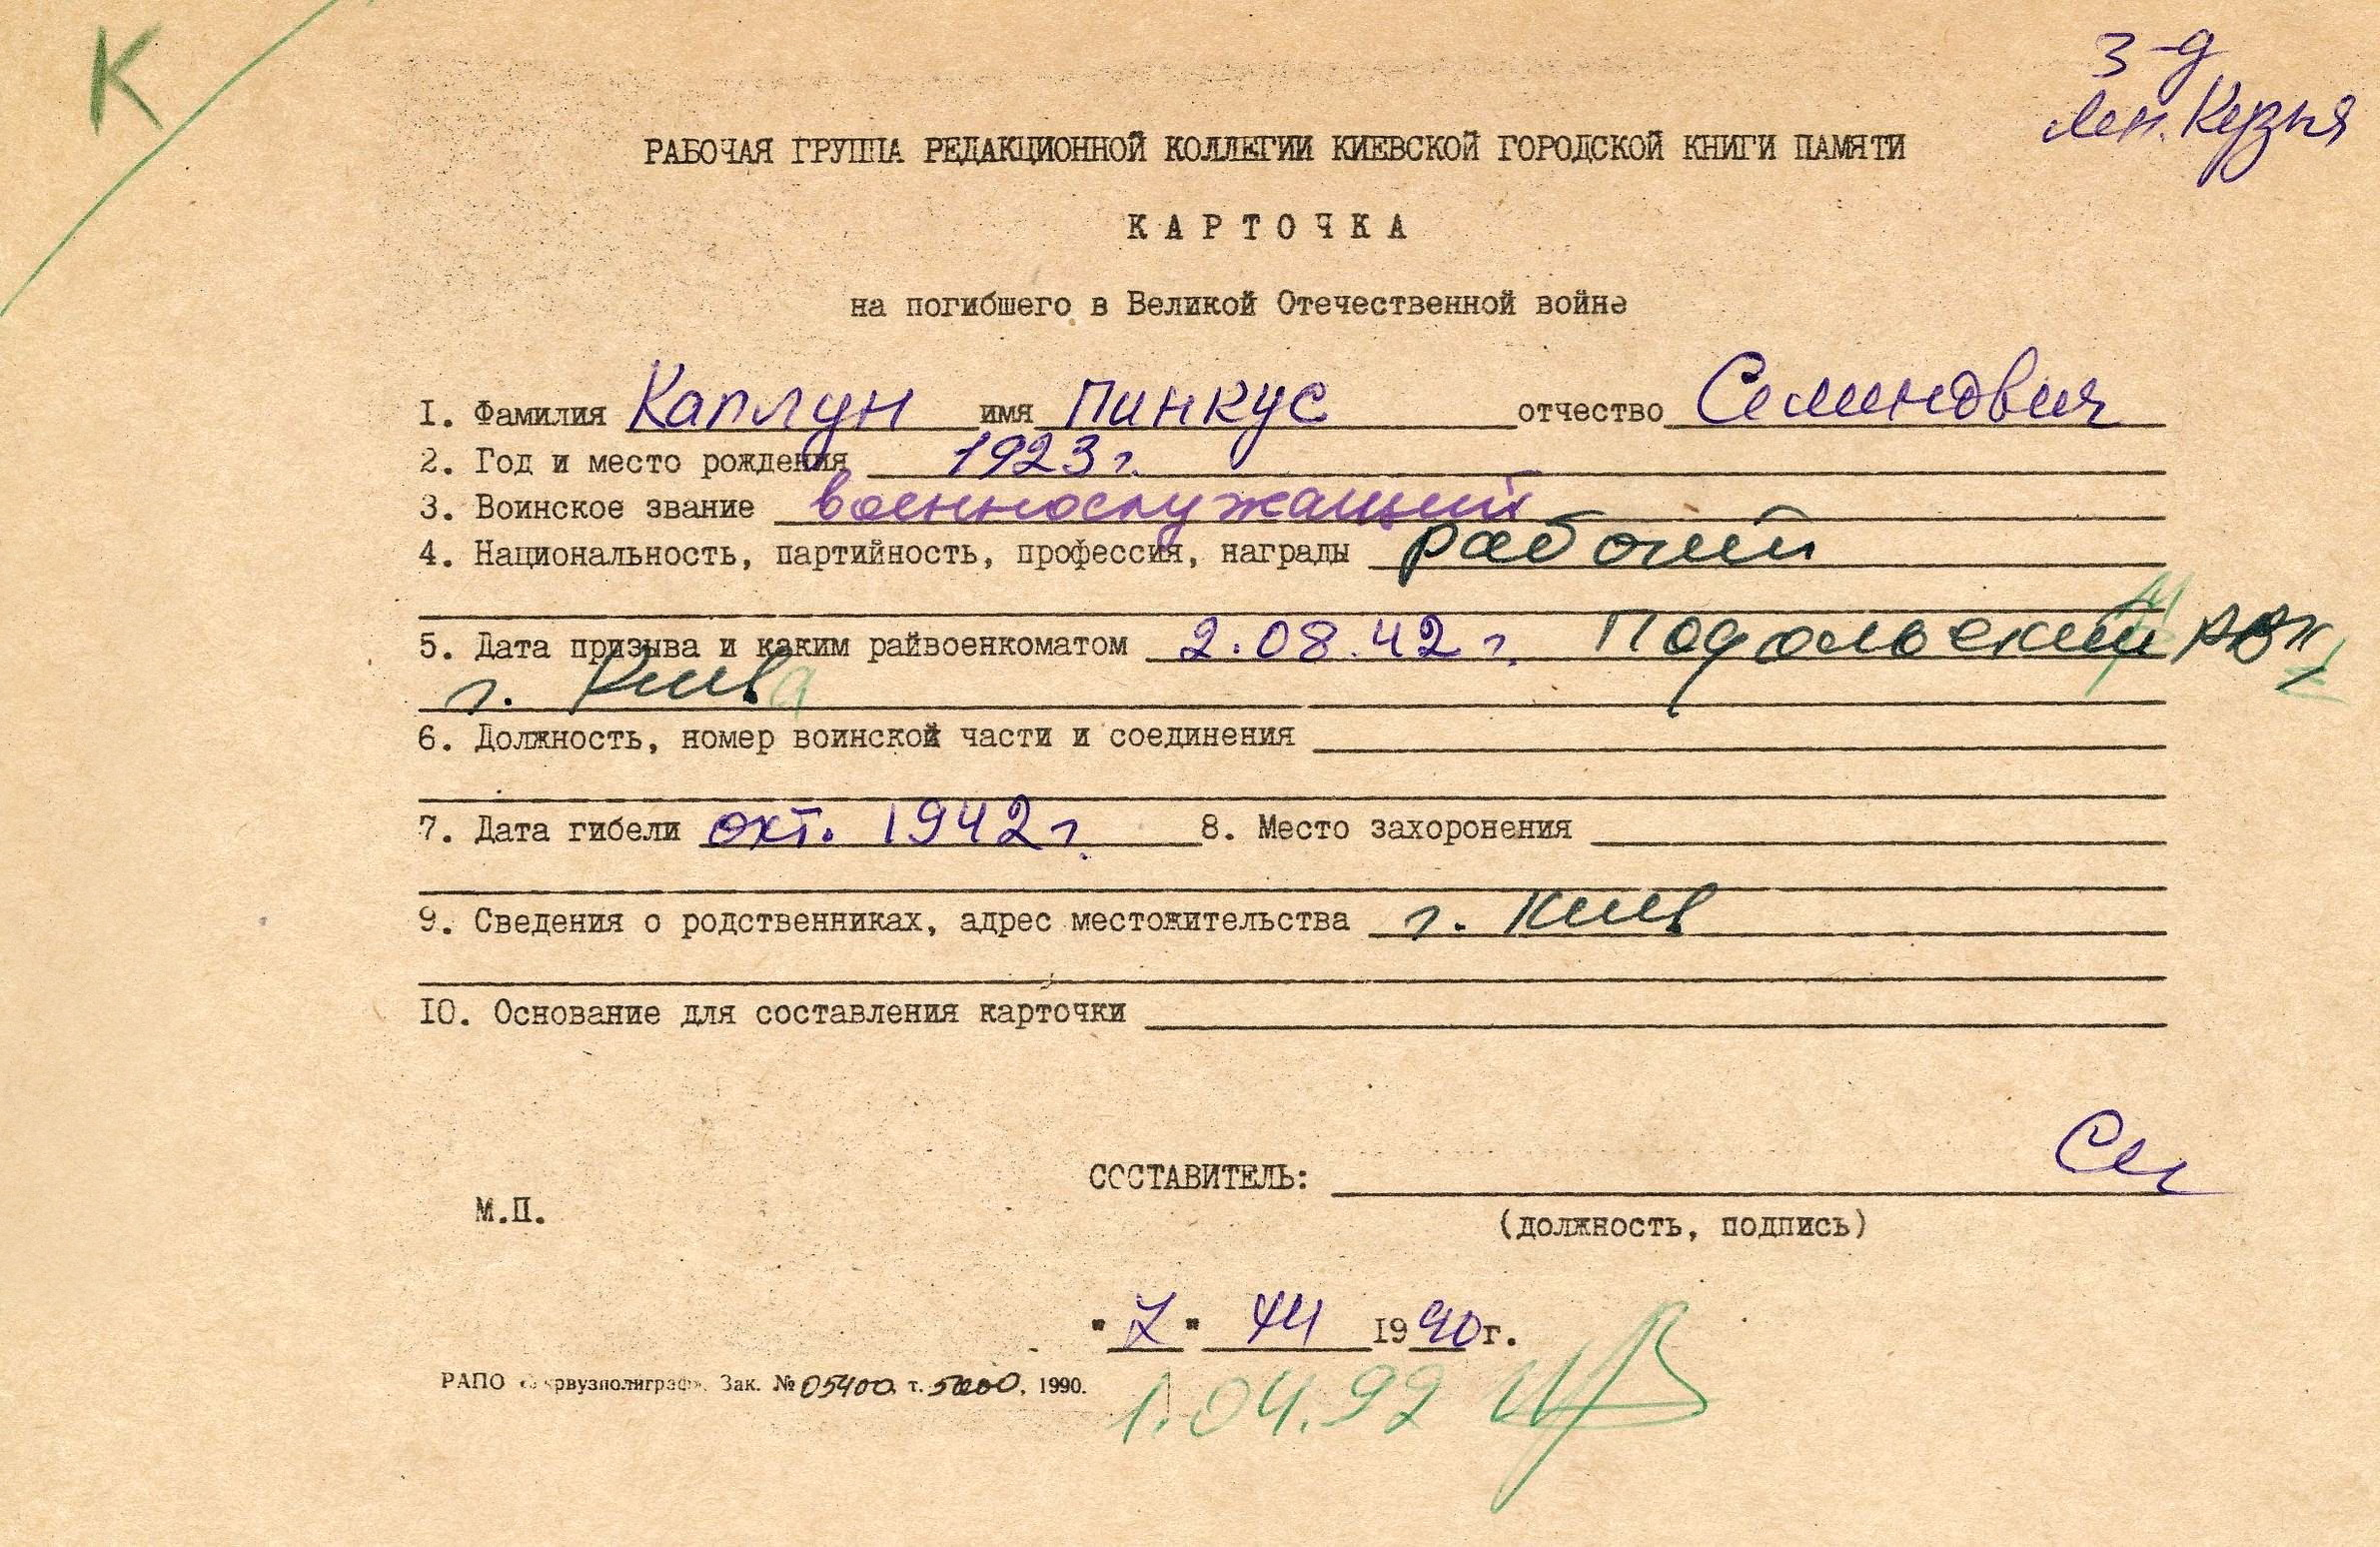 К
з-д
Лен. Кузня
РАБОЧАЯ ГРУППА РЕДАКЦИОННОЙ КОЛЛЕГИИ КИЕВСКОЙ ГОРОДСКОЙ КНИГИ ПАМЯТИ
КАРТОЧКА
на погибшего в Великой Отечественной войне
1. Фамилия Каплун имя Пинкус отчество Семинович
2. Год и место рождения 1923 г.
3. Воинское звание военнослужащий
4. Национальность, партийность, профессия, награды рабочий
5. Дата призыва и каким райвоенкоматом 2.08.42 г. Подольский РВК
г. Киева
6. Должность, номер воинской части и соединения
7. Дата гибели окт. 1942 г. 8. Место захоронения
9. Сведения о родственниках, адрес местожительства г. Киев
10. Основание для составления карточки
СОСТАВИТЕЛЬ:
М.П.
(должность, подпись)
"7" XII 1990г.
РАПО «Укрвузполиграф». Зак. № 05400. т. 5000, 1990.
1.04.92